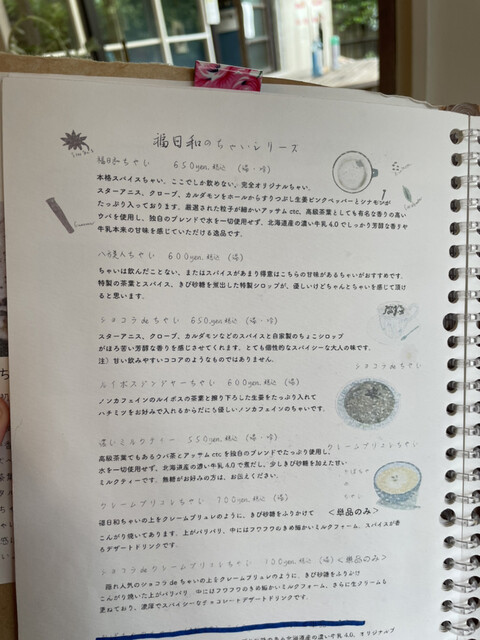 福日和のちゃいシリーズ
福日和ちゃい 650yen.税込 (温・冷)
本格スパイスちゃい。ここでしか飲めない。完全オリジナルちゃい。
スターアニス、クローブ、カルダモンをホールからすりつぶし生姜ピンクペッパーとシナモンが
たっぷり入っております。厳選された粒子が細かいアッサムetc. 高級茶葉としても有名な香りの高い
ウバを使用し、独自のブレンドで水を一切使用せず、北海道産の濃い牛乳4.0でしっかり芳醇な香りや
牛乳本来の甘味を感じていただける逸品です。
八方美人ちゃい 600yen.税込 (温・冷)
ちゃいは飲んだことない。またはスパイスがあまり得意はこちらの甘味があるちゃいがおすすめです。
特製の茶葉とスパイス、きび砂糖を煮出した特製シロップが、優しいけどちゃんとちゃいを感じて頂け
ると思います。
ショコラdeちゃい 650yen.税込 (温・冷)
スターアニス、クローブ、カルダモンなどのスパイスと自家製のちょこシロップ
がほろ苦い芳醇な香りを感じさせてくれます。とても個性的なスパイシーな大人の味です。
注）甘い飲みやすいココアのようなものではありません。
ショコラdeちゃい
ルイボスジンジャーちゃい 600yen.税込 (温)
ノンカフェインのルイボスの茶葉と擦り下ろした生姜をたっぷり入れて
ハチミツをお好みで入れるからだにも優しいノンカフェインのちゃいです。
濃いミルクティー 550yen.税込 (温・冷)
高級茶葉でもあるウバ茶とアッサムetcを独自のブレンドでたっぷり使用し、
水を一切使用せず、北海道産の濃い牛乳4.0で煮だし、少しきび砂糖を加えた甘い
ミルクティーです。無糖がお好みの方は、お伝えください。
クレームブリュレちゃい
クレームブリュレちゃい 700yen.税込 (温)
<単品のみ>
福日和ちゃいの上をクレームブリュレのように、きび砂糖をふりかけて
こんがり焼いてあります。上がパリパリ、中にはフワフワのきめ細かいミルクフォーム、スパイスが香
るデザートドリンクです。
ショコラdeクレームブリュレちゃい 700yen.税込 (温) <単品のみ>
隠れ人気のショコラdeちゃいの上をクレームブリュレのように、きび砂糖をふりかけ
こんがり焼いた上がパリパリ、中にはフワフワのきめ細かいミルクフォーム、さらに生クリームも
重ねており、濃厚でスパイシーなチョコレートデザートドリンクです。